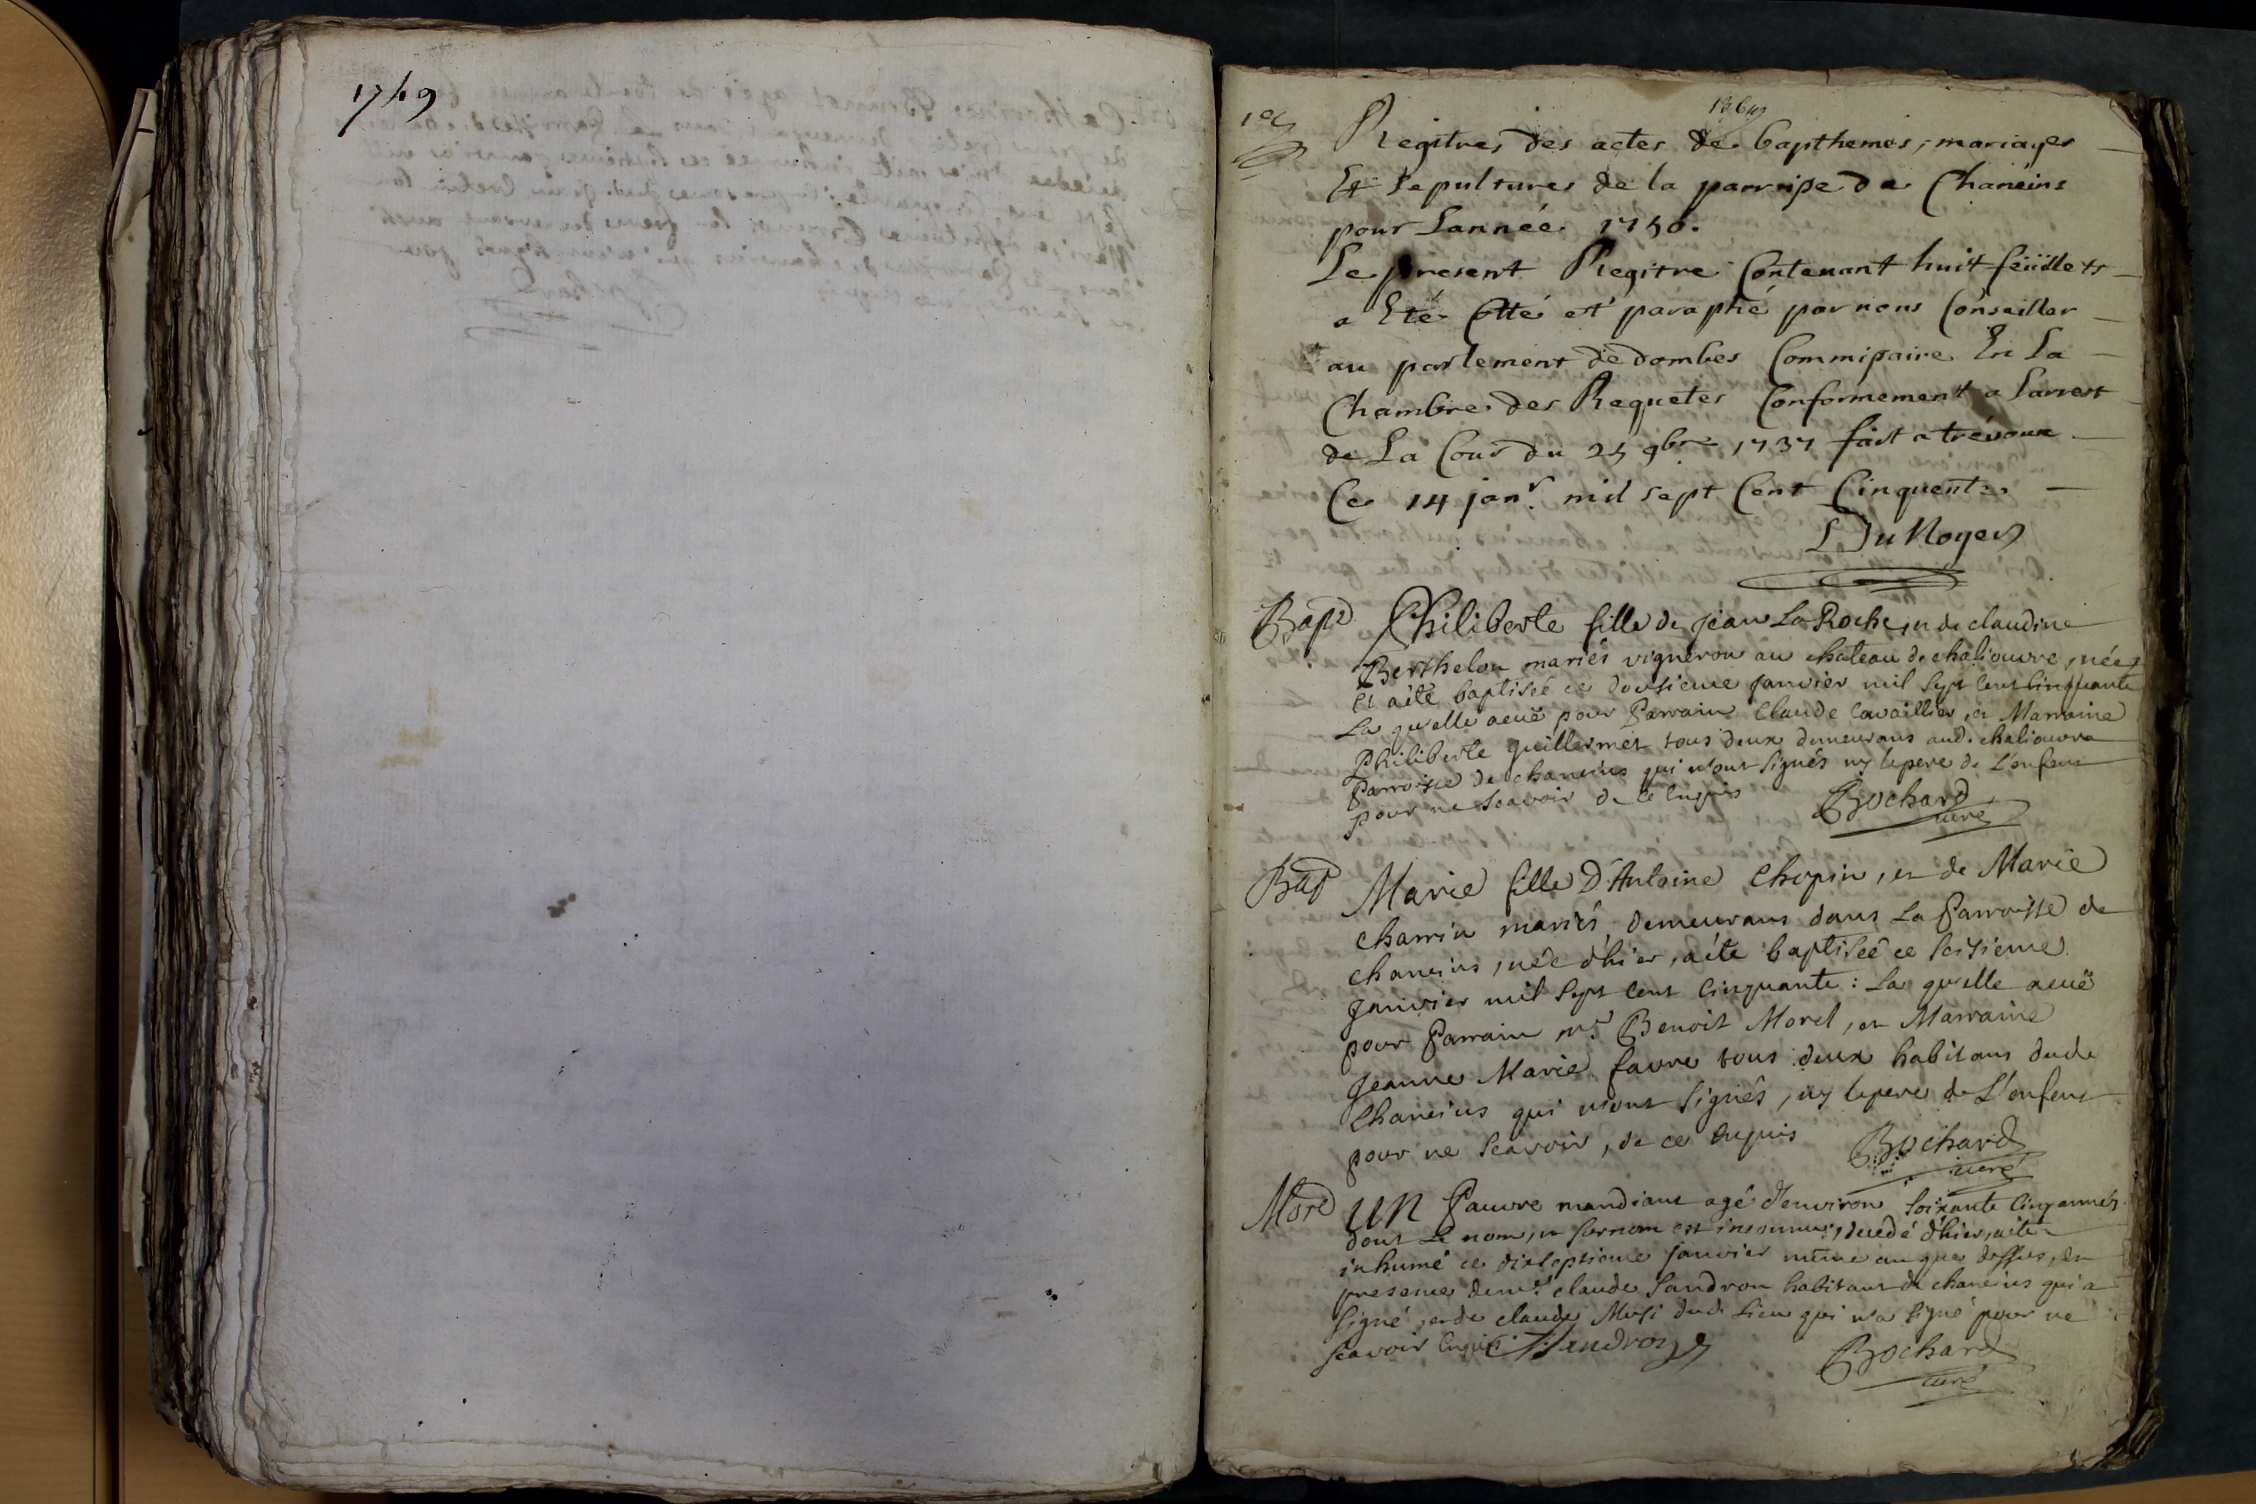 1749
1er
Registre des actes de bapthemes, mariages
Et sepultures de la parroise de Chaneins
pour Lannée 1750.
Le present Registre Contenant huit feüillets
a Eté Cotté et paraphé par nous Conseiller
au parlement de dombes Commissaire En La
Chambre des Requetes Conformement a Larrest
de La Cour du 25 9bre 1737 fait a trévoux
Ce 14 janr. mil sept Cent Cinquente.
DuNoyer
Bapt Philiberte fille de jean La Roche, et de claudine
Berthelon mariés vigneron au chateau de chaliouvre, née,
et aété baptisée ce dousieme janvier mil sept cent cinquante
La qu'elle aeuë pour Parrain Claude Cavaillier, et Marraine
Philiberte guillermet tous deux demeurans aud. chaliouvre
Parroisse de chaneins qui n'ont signés ny le pere de L'enfent
pour ne scavoir de ce Enquis
Bochard
curé
Bap Marie fille D'Antoine Chopin, et de Marie
charrin mariés, demeurans dans La Parroisse de
chaneins, née d'hier, aéte baptisée ce seisieme
janvier mil sept cent cinquante : La qu'elle aeuë
pour Parrain mr. Benoit Morel, et Marraine
Jeanne Marie favre tous deux habitans dud.
Chaneins qui n'ont signés, ny le pere de L'enfent
pour ne scavoir, de ce Enquis
Bochard
curé
Mort UN Pauvre mandiant agé d'environ soixante cinq années
dont Le nom, et surnom est inconnus, decedé d'hier, aéte
inhumé ce dixseptieme janvier même an que dessus, en
presence de mr. claude Sandron habitant de chaneins qui a
signé, et de claude Musi dud. Lieu qui n'a signé pour ne
scavoir Enquis CSandron
Bochard
curé